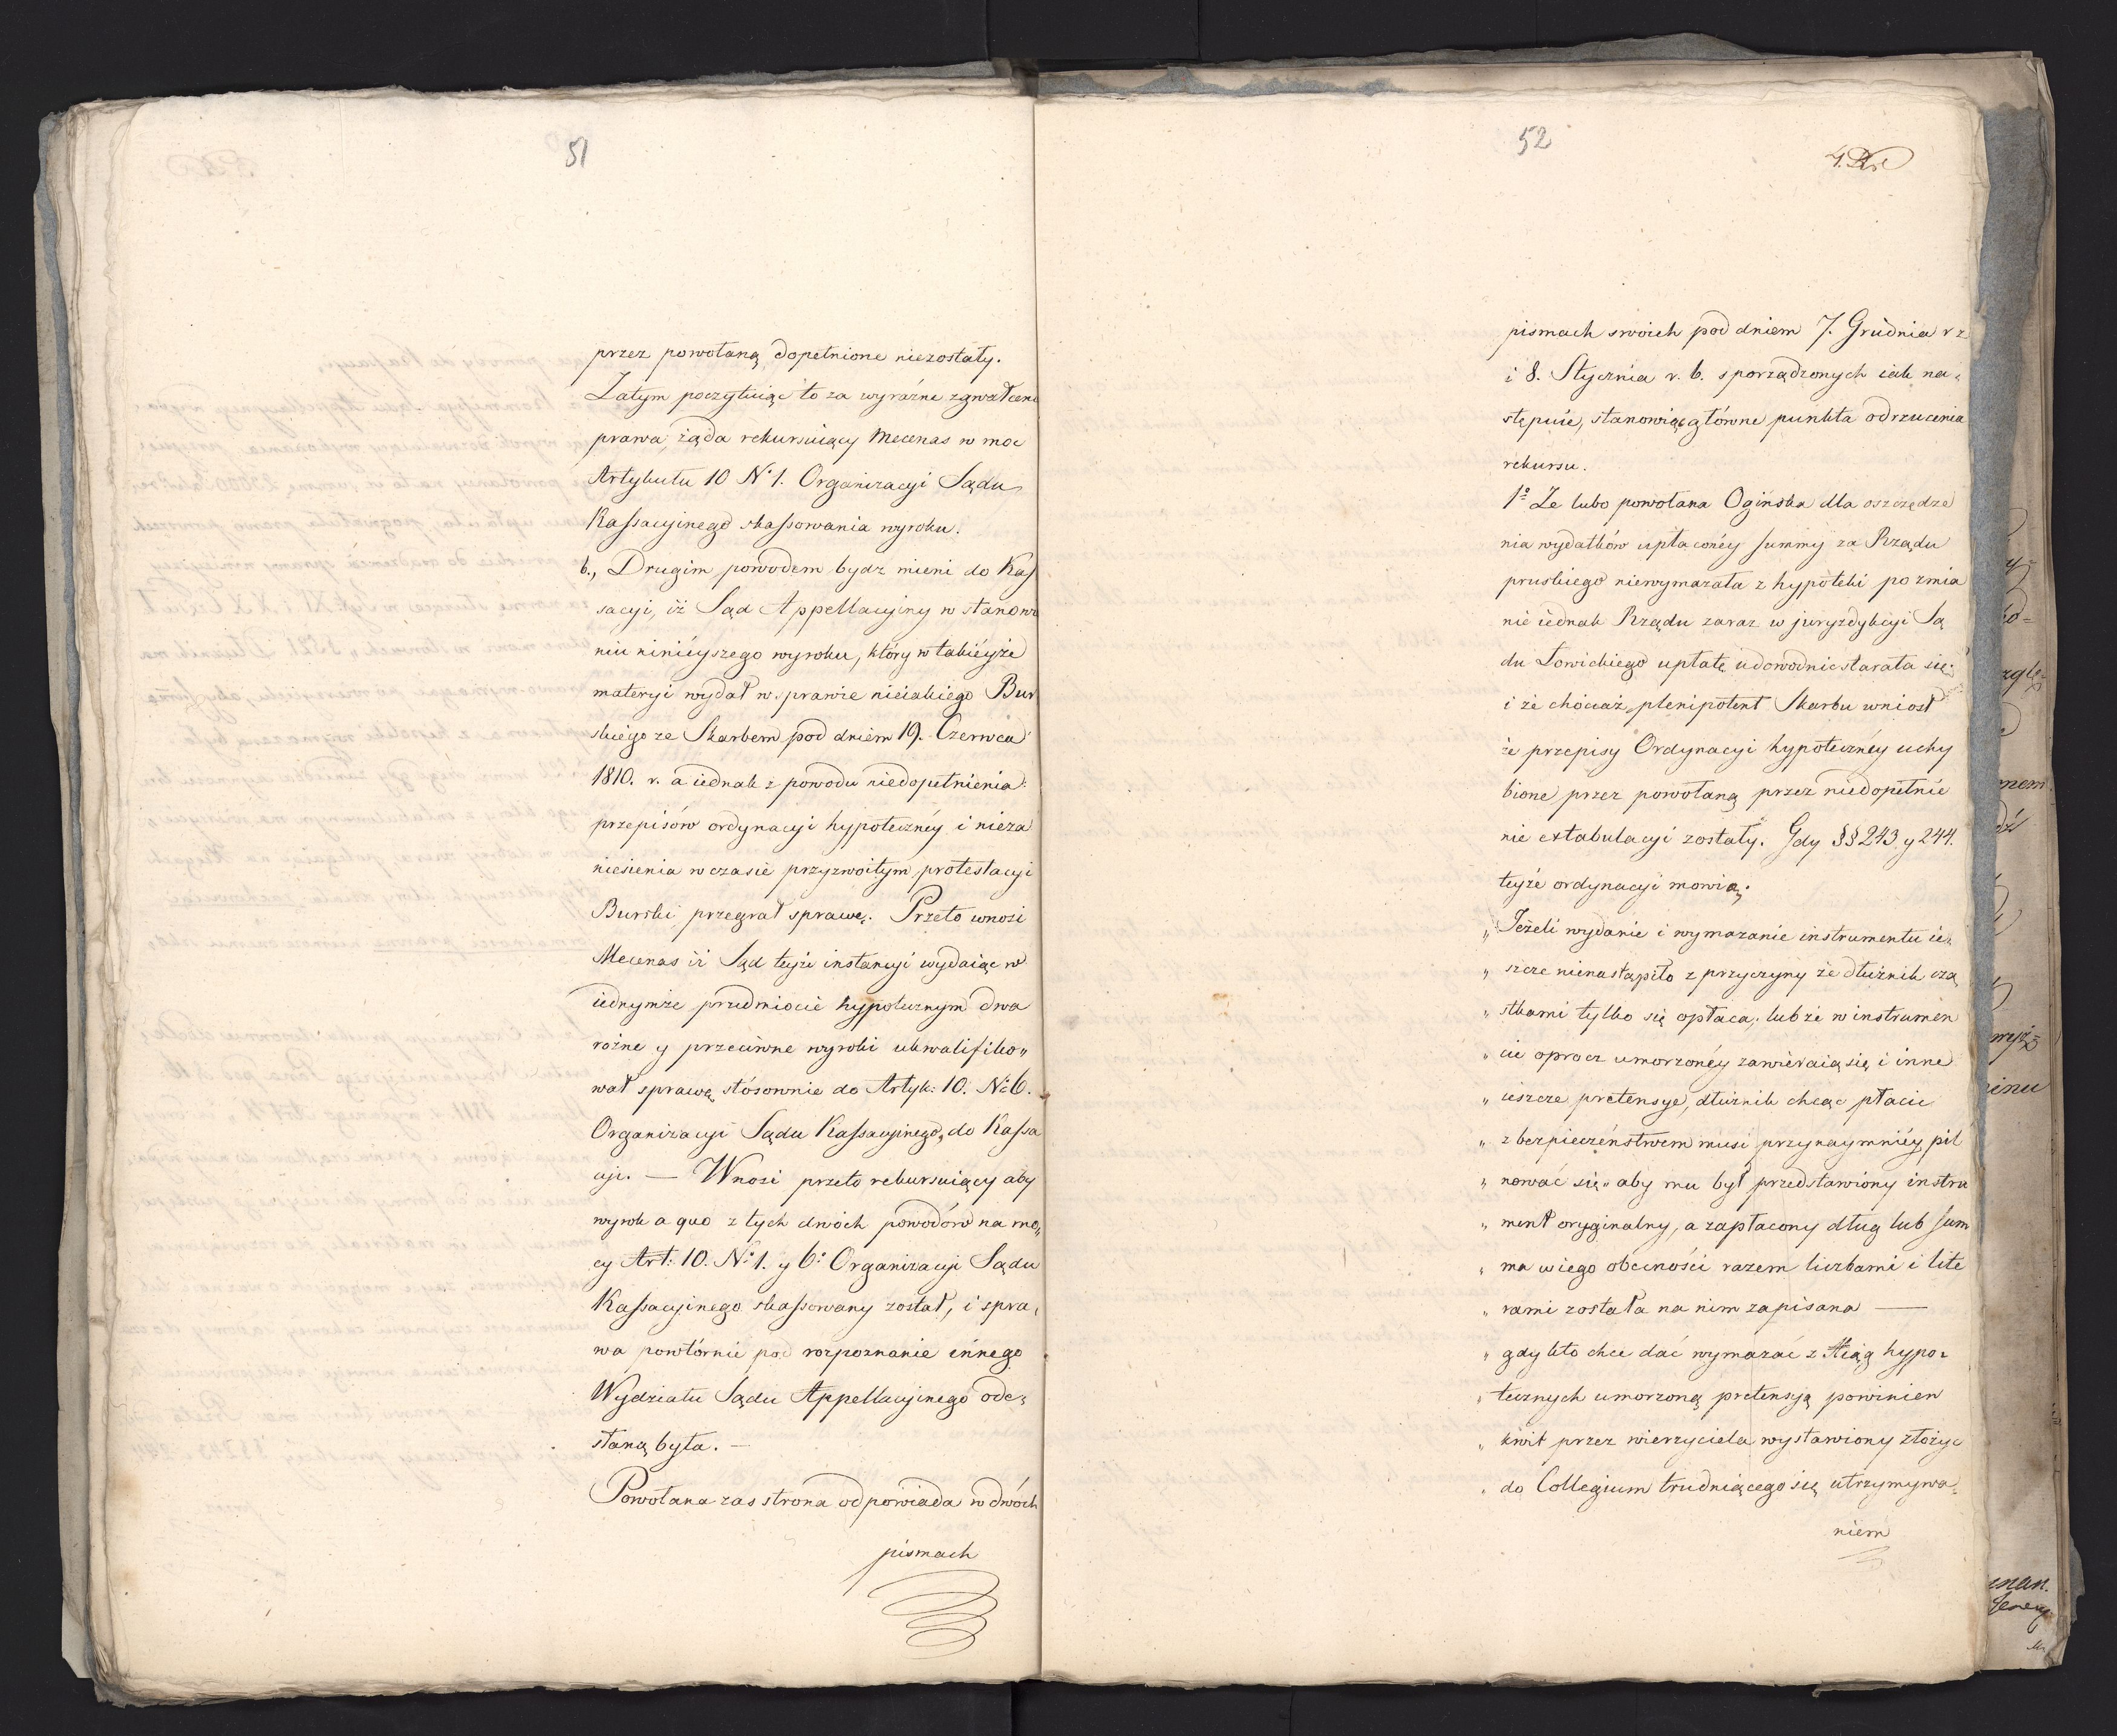 51
przez powołaną dopełnione niezostały.
Zatym poczytuiąc to za wyraźne zgwałceni
prawa, żąda rekursuiący Mecenas w moc
Artykułu 10 Nº 1. Organizacyi Sądu
Kassacyinego skassowania wyroku.
b., Drugim powodem bydz mieni do Kas
sacyi, iż Sąd Appellacyiny w stanowi
niu ninieyszego wyroku, który w takieyże
materyi wydał w sprawie nieiakiego Bur
skiego ze Skarbem pod dniem 19. Czerwca
1810. r. a iednak z powodu niedopełnienia
przepisów ordynacyi hypoteczney i nieza
niesienia w czasie przyzwoitym protestacyi
Burski przegrał sprawę. Przeto wnosi
Mecenas iż Sąd teyże instancyi wydaiąc w
iednymże przedmiocie hypotecznym dwa
rożne y przeciwne wyroki ukwalifiko„
wał sprawę stósownie do Artyk: 10. Nº 6.
Organizacyi Sądu Kassacyinego, do Kassa
cyi. — Wnosi przeto rekursuiący aby
wyrok a quo z tych dwóch powodów na mo„
cy Art: 10. Nº 1. y 6º Organizacyi Sądu
Kassacyinego skassowany został, i spra„
wa powtórnie pod rozpoznanie innego
Wydziału Sądu Appellacyinego ode„
słaną była. —
Powołana zas strona odpowiada w dwóch
pismach
52
pismach swoich pod dniem 7. Grudnia r z
i 8. Stycznia r. b. sporządzonych iak na„
stępuie, stanowiąc główne punkta odrzucenia
rekursu.
1º Że lubo powołana Ogińska dla oszczędze
nia wydatków upłaconéy summy za Rządu
pruskiego niewymazała z hypoteki po zmia
nie iednak Rządu zaraz w juryzdykcyi Są
du Łowickiego upłatę udowodnić starała się.
i że chociaż plenipotent Skarbu wniosł
że przepisy Ordynacyi hypotecznéy uchy
bione przez powołaną przez niedopełnie
nie extabulacyi zostały. Gdy §§ 243 y 244.
teyże ordynacyi mowią:
„ Jeżeli wydanie i wymazanie instrumentu ie„
„ szcze nienastąpiło z przyczyny że dłużnik czą
„ stkami tylko się opłaca, lub że w instrumen
„ cie oprocz umorzonéy zawieraią się i inne
„ ieszcze pretensye, dłużnik chcąc płacić
„ z bezpieczeństwem musi przynaymniéy pil
„ nować się aby mu był przedstawiony instru
„ ment oryginalny, a zapłacony dług lub sum
„ ma w iego obecności razem liczbami i lite
„ rami została na nim zapisana —
„ gdy kto chce dać wymazać z Xiąg hypo„
„ tecznych umorzoną pretensyą powinien
„ kwit przez wierzyciela wystawiony złożyć
„ do Collegium trudniącego się utrzymywa„
niem